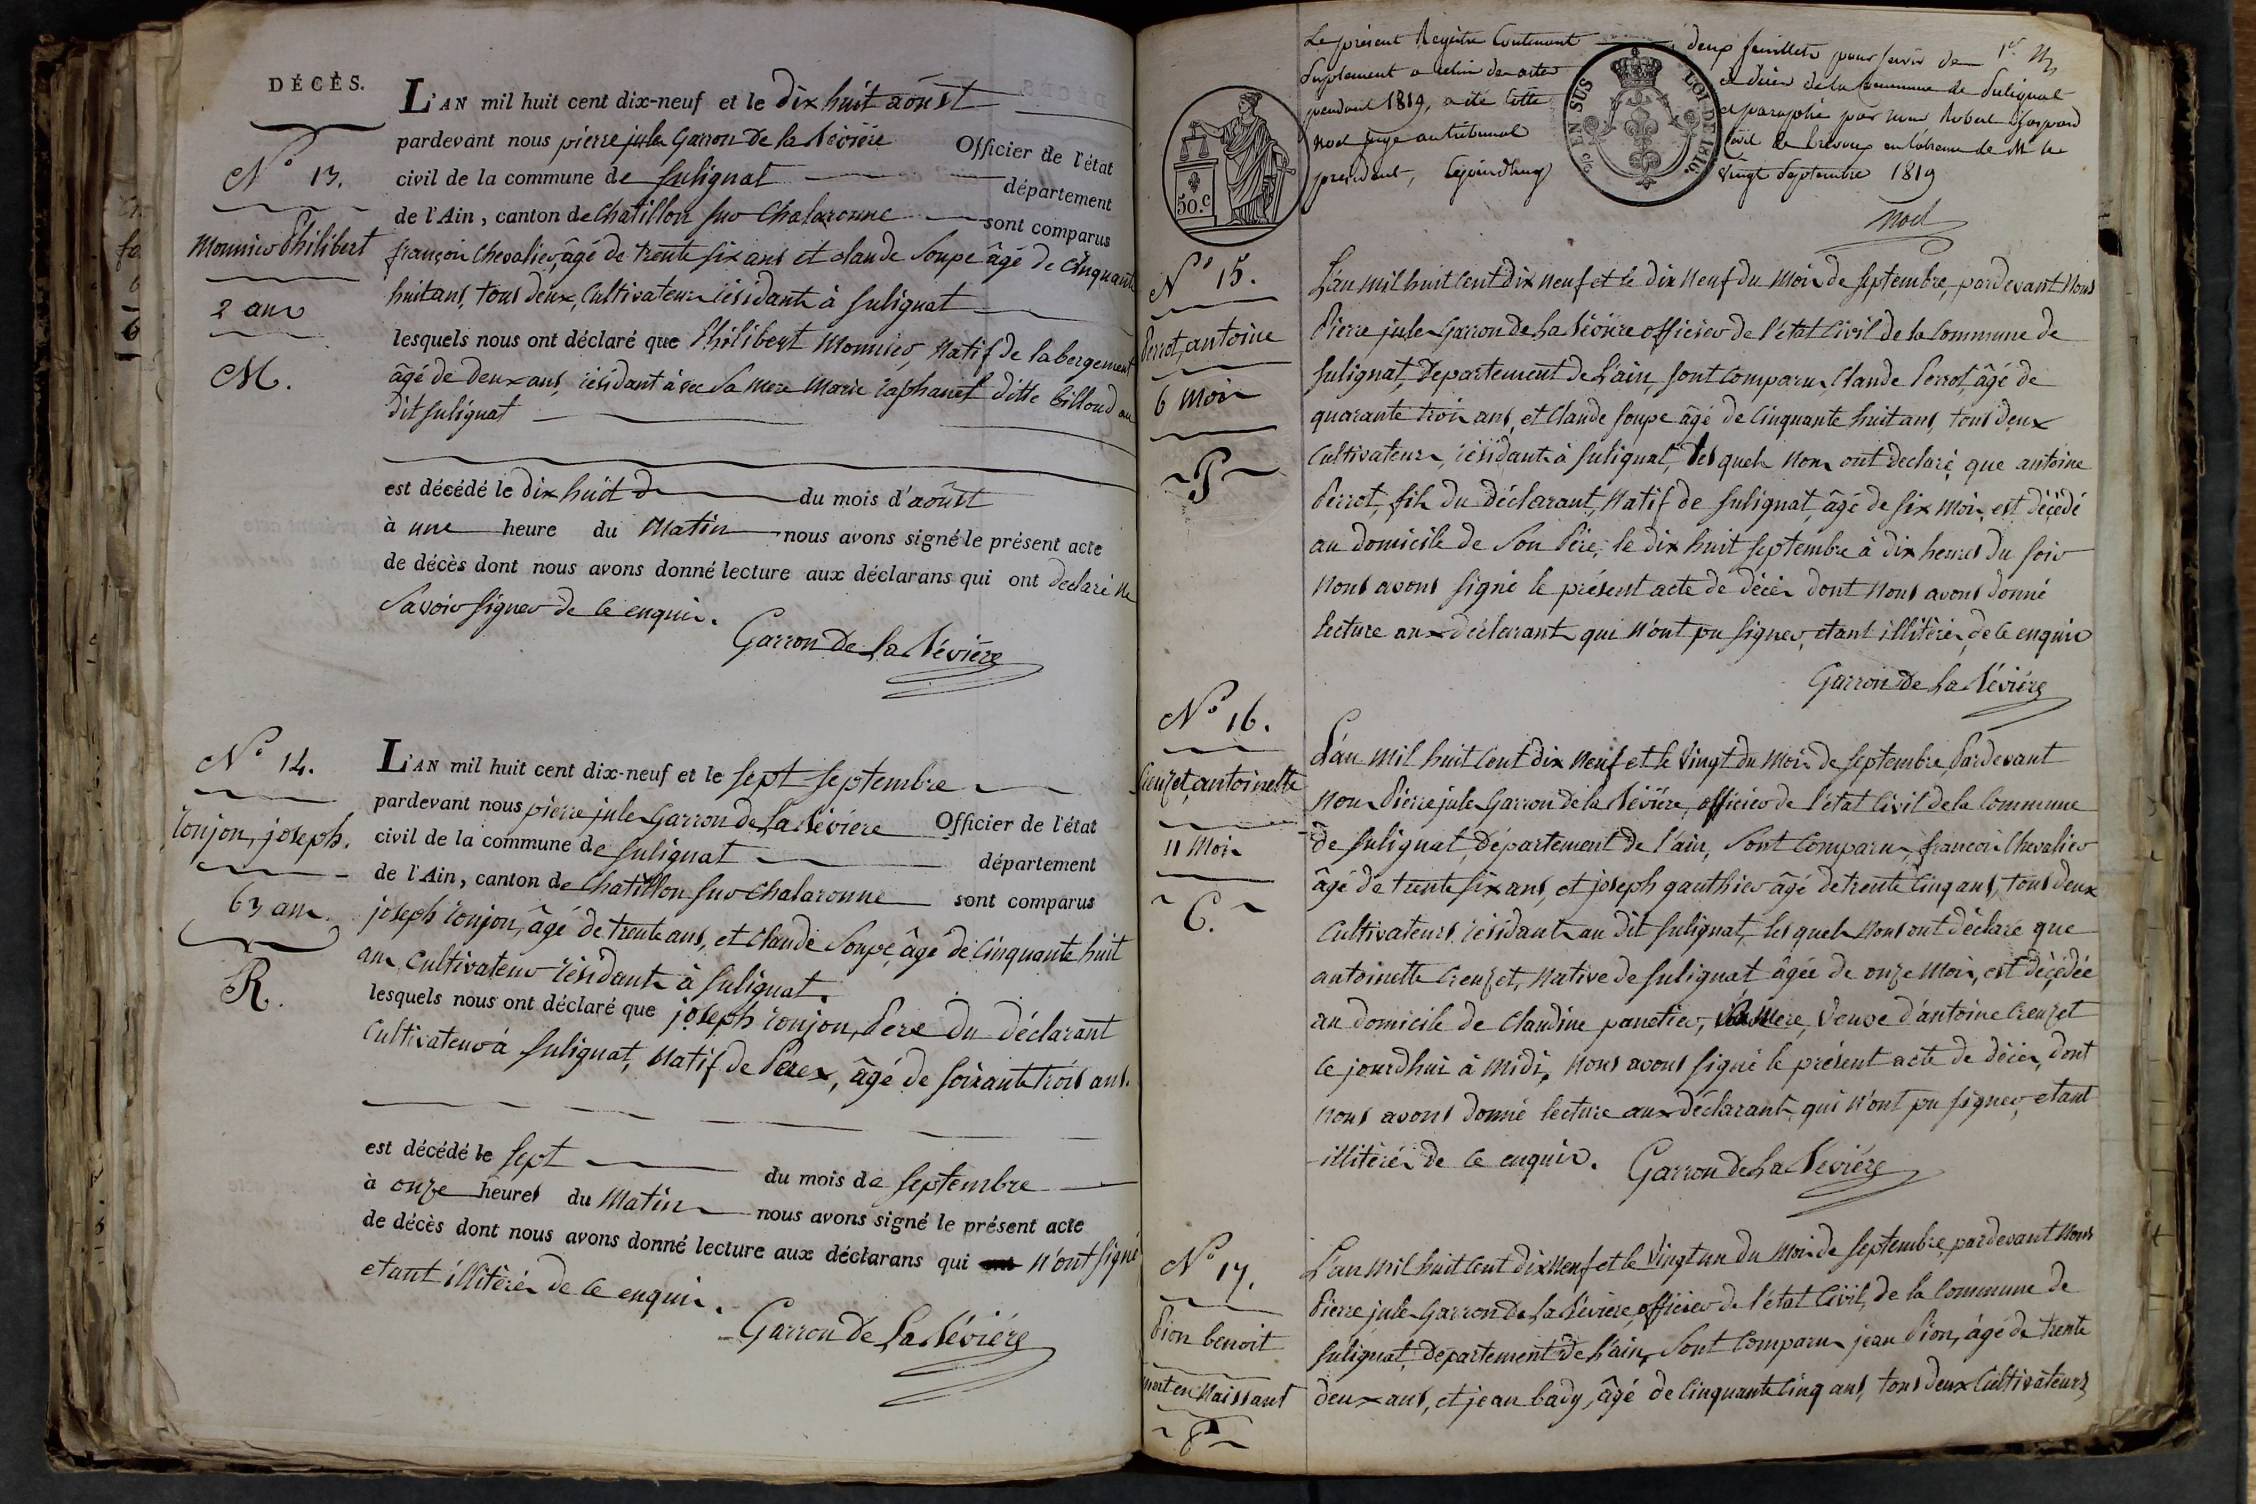 DÉCÈS.
N° 13.
Monnier Philibert
2 ans
M.
L'AN mil huit cent dix-neuf et le dix huit aoûst
pardevant nous pierre jule Garron De la Bévière Officier de l'état
civil de la commune de Sulignat département
de l'Ain, canton de Chatillon sur Chalaronne sont comparus
françois Chevalier, âgé de trente six ans et claude Soupe âgé de cinquante
huit ans, tous deux, Cultivateurs résidants à Sulignat
lesquels nous ont déclaré que Philibert Monnier, Natif de labergement
âgé de deux ans, résidant avec sa mere Marie raphanel ditte billoud au
dit Sulignat
est décédé le dix huit d du mois d'aoûst
à une heure du Matin nous avons signé le présent acte
de décès dont nous avons donné lecture aux déclarans qui ont declaré ne
Savoir signer de ce enquis.
Garron De la Bévière
N° 14.
ronjon, joseph.
63 ans.
R.
L'AN mil huit cent dix-neuf et le sept septembre
pardevant nous pierre jule Garron De La Bévière Officier de l'état
civil de la commune de Sulignat département
de l'Ain, canton de Chatillon sur Chalaronne sont comparus
joseph ronjon, âgé de trente ans, et Claude Soupe âgé de cinquante huit
ans cultivateurs résidants à Sulignat.
lesquels nous ont déclaré que joseph ronjon, Pere du déclarant
Cultivateur à Sulignat, Natif de Perex, âgé de soixante trois ans.
est décédé le sept du mois de septembre
à onze heures du Matin nous avons signé le présent acte
de décès dont nous avons donné lecture aux déclarans qui n'ont signé
etant illitérés de ce enquis.
Garron De La Bévière
Le présent Registre Contenant deux feuillets pour servir de 1er
Suplement a celui des actes de décès de la Commune de Sulignat
pendant 1819, a été Cotté et paraphé par nous Robert Gaspard
Noel juge au tribunal Civil de Trevoux en l'absence de Mr le
président, cejourdhuy vingt Septembre 1819
Noel
50.C
EN SUS
LOI DE 1816.
N° 15.
Perrot, antoine
6 mois
P
L'an mil huit Cent Dix neuf et le dix Neuf du Mois de Septembre, pardevant Nous
Pierre jule Garron De La Bévière officier de l'état Civil de la Commune de
Sulignat, Departement De L'ain, sont Comparus, Claude Perrot, âgé de
quarante trois ans, et Claude soupe âgé de cinquante huit ans, tous deux
Cultivateurs, résidants à Sulignat, lesquels nous ont declaré que antoine
Perrot, fils du déclarant, Natif de Sulignat, âgé de six Mois, est déçédé
au domicile de Son Père; le dix huit septembre à dix heures du soir
Nous avons signé le présent acte de décès dont Nous avons donné
lecture aux déclarants qui N'ont pu signer, étant illitérés, de ce enquis
Garron De La Bévière
N° 16.
Creuzet, antoinette
11 Mois
C.
L'an mil huit Cent Dix Neuf et le Vingt du Mois de septembre, Pardevant
Nous Pierre jule Garron de la Bévière, officier de l'état Civil de la Commune
de Sulignat, Département de l'ain, Sont Comparus, francois Chevalier
âgé de trente six ans, et joseph gauthier âgé de trente Cinq ans, tous deux
Cultivateurs, résidants au dit Sulignat, lesquels Nous ont déclaré que
antoinette Creuzet, Native de Sulignat âgée de onze Mois, est déçédée
au domicile de Claudine panetier, sa Mere, Veuve d'antoine Creuzet
Ce jourdhui à Midi, Nous avons signé le présent acte de décès, dont
Nous avons donné lecture aux déclarants, qui N'ont pu signer, etant
illitérés de ce enquis. Garron De La Bévière
N° 17.
Pion benoit
mort en Naissant
P
L'an Mil huit Cent Dix Neuf et le Vingt un du Mois de Septembre, pardevant Nous
Pierre jule Garron De La Bévière, officier de l'état Civil, de la Commune de
Sulignat, Departement De L'ain, Sont Comparus jean Pion, âgé de trente
deux ans, et jean bady, âgé de Cinquante Cinq ans, tous deux Cultivateurs